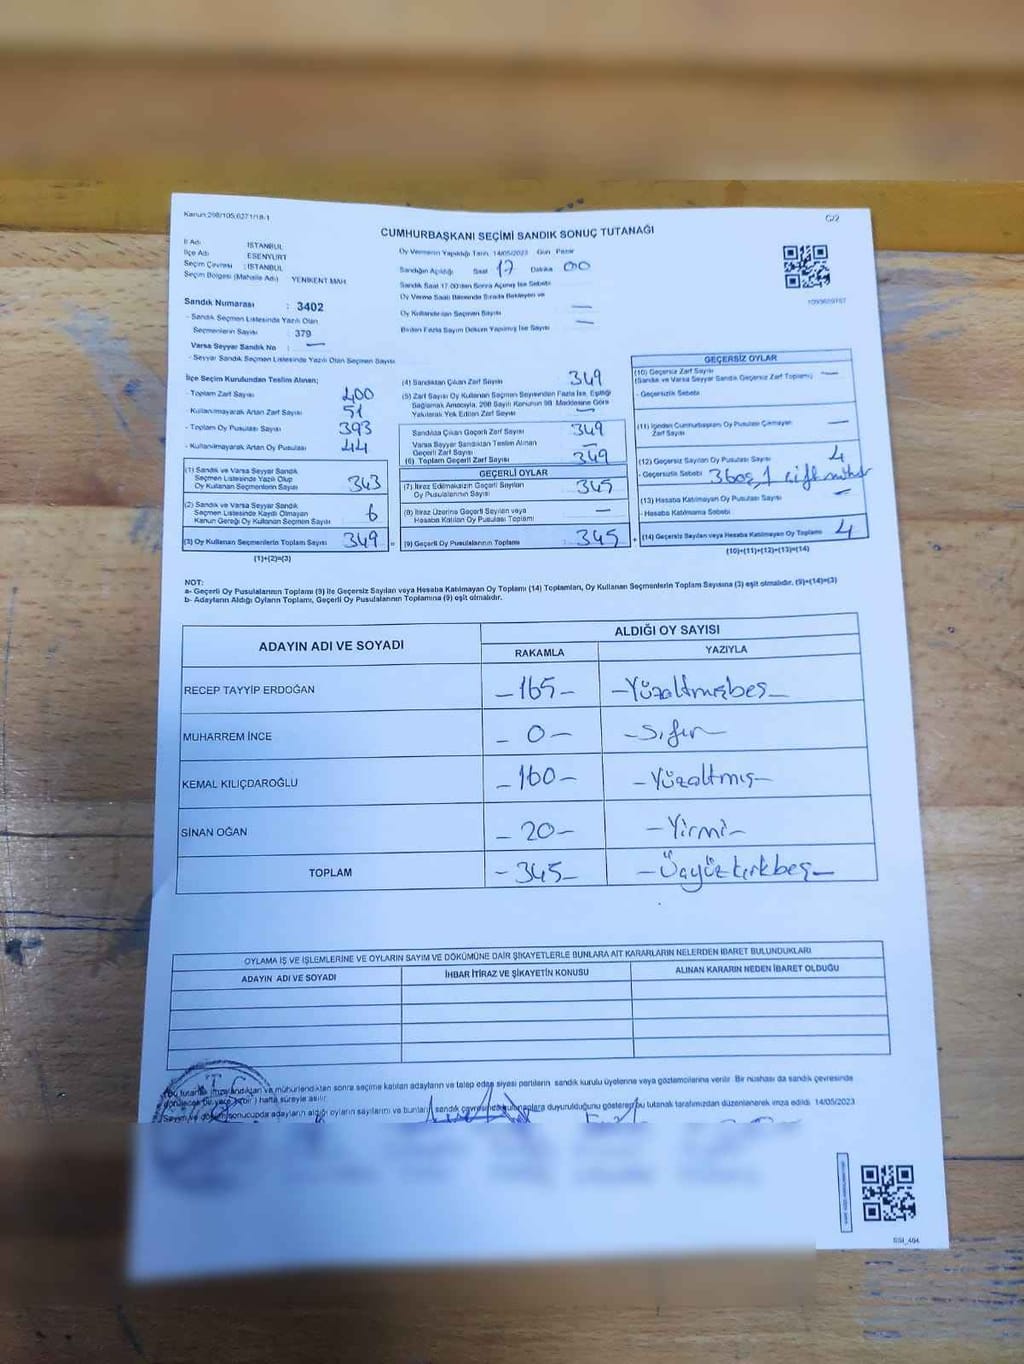 Kanun:298/105,6271/18-1
C/2
CUMHURBAŞKANI SEÇİMİ SANDIK SONUÇ TUTANAĞI
İl Adı : İSTANBUL
İlçe Adı : ESENYURT
Seçim Çevresi : İSTANBUL
Seçim Bölgesi (Mahalle Adı) YENİKENT MAH.
Sandık Numarası : 3402
- Sandık Seçmen Listesinde Yazılı Olan
Seçmenlerin Sayısı : 379
Varsa Seyyar Sandık No : —
- Seyyar Sandık Seçmen Listesinde Yazılı Olan Seçmen Sayısı
Oy Vermenin Yapıldığı Tarih: 14/05/2023 Gün Pazar
Sandığın Açıldığı Saat 17 Dakika 00
Sandık Saat 17.00'den Sonra Açılmış İse Sebebi
Oy Verme Saati Bitiminde Sırada Bekleyen ve
Oy Kullandırılan Seçmen Sayısı —
Birden Fazla Sayım Döküm Yapılmış İse Sayısı —
İlçe Seçim Kurulundan Teslim Alınan;
- Toplam Zarf Sayısı 400
- Kullanılmayarak Artan Zarf Sayısı 51
- Toplam Oy Pusulası Sayısı 393
- Kullanılmayarak Artan Oy Pusulası 44
(1) Sandık ve Varsa Seyyar Sandık
Seçmen Listesinde Yazılı Olup
Oy Kullanan Seçmenlerin Sayısı 343
(2) Sandık ve Varsa Seyyar Sandık
Seçmen Listesinde Kaydı Olmayan
Kanun Gereği Oy Kullanan Seçmen Sayısı 6
(3) Oy Kullanan Seçmenlerin Toplam Sayısı 349 =
(1)+(2)=(3)
(4) Sandıktan Çıkan Zarf Sayısı 349
(5) Zarf Sayısı Oy Kullanan Seçmen Sayısından Fazla İse, Eşitliği
Sağlamak Amacıyla, 298 Sayılı Kanunun 98. Maddesine Göre
Yakılarak Yok Edilen Zarf Sayısı —
Sandıkta Çıkan Geçerli Zarf Sayısı 349
Varsa Seyyar Sandıktan Teslim Alınan
Geçerli Zarf Sayısı —
(6) Toplam Geçerli Zarf Sayısı 349
GEÇERLİ OYLAR
(7) İtiraz Edilmeksizin Geçerli Sayılan
Oy Pusulalarının Sayısı 345
(8) İtiraz Üzerine Geçerli Sayılan veya
Hesaba Katılan Oy Pusulası Toplamı —
(9) Geçerli Oy Pusulalarının Toplamı 345 +
GEÇERSİZ OYLAR
(10) Geçersiz Zarf Sayısı
(Sandık ve Varsa Seyyar Sandık Geçersiz Zarf Toplamı) —
- Geçersizlik Sebebi
(11) İçinden Cumhurbaşkanı Oy Pusulası Çıkmayan
Zarf Sayısı —
(12) Geçersiz Sayılan Oy Pusulası Sayısı 4
- Geçersizlik Sebebi 3 boş, 1 çift mühür
(13) Hesaba Katılmayan Oy Pusulası Sayısı —
- Hesaba Katılmama Sebebi
(14) Geçersiz Sayılan veya Hesaba Katılmayan Oy Toplamı 4
(10)+(11)+(12)+(13)=(14)
NOT:
a- Geçerli Oy Pusulalarının Toplamı (9) ile Geçersiz Sayılan veya Hesaba Katılmayan Oy Toplamı (14) Toplamları, Oy Kullanan Seçmenlerin Toplam Sayısına (3) eşit olmalıdır. (9)+(14)=(3)
b- Adayların Aldığı Oyların Toplamı, Geçerli Oy Pusulalarının Toplamına (9) eşit olmalıdır.
ADAYIN ADI VE SOYADI
ALDIĞI OY SAYISI
RAKAMLA YAZIYLA
RECEP TAYYİP ERDOĞAN —165— —Yüzaltmışbeş—
MUHARREM İNCE —0— —Sıfır—
KEMAL KILIÇDAROĞLU —160— —Yüzaltmış—
SİNAN OĞAN —20— —Yirmi—
TOPLAM —345— —Üçyüzkırkbeş—
OYLAMA İŞ VE İŞLEMLERİNE VE OYLARIN SAYIM VE DÖKÜMÜNE DAİR ŞİKAYETLERLE BUNLARA AİT KARARLARIN NELERDEN İBARET BULUNDUKLARI
ADAYIN ADI VE SOYADI İHBAR İTİRAZ VE ŞİKAYETİN KONUSU ALINAN KARARIN NEDEN İBARET OLDUĞU
mühürlendikten sonra seçime katılan adayların ve talep eden siyasi partilerin sandık kurulu üyelerine veya gözlemcilerine verilir. Bir nüshası da sandık çevresinde
hafta süreyle asılır.
sonucunda adayların aldığı oyların sayılarını ve bunların sandık çevresinde bulunanlara duyurulduğunu gösteren bu tutanak tarafımızdan düzenlenerek imza edildi. 14/05/2023
T.C.